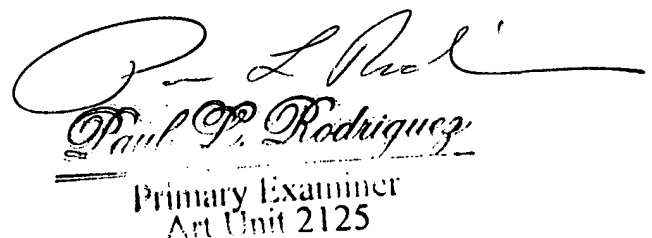 Paul L Rod
Paul P. Rodriguez
Primary Examiner
Art Unit 2125